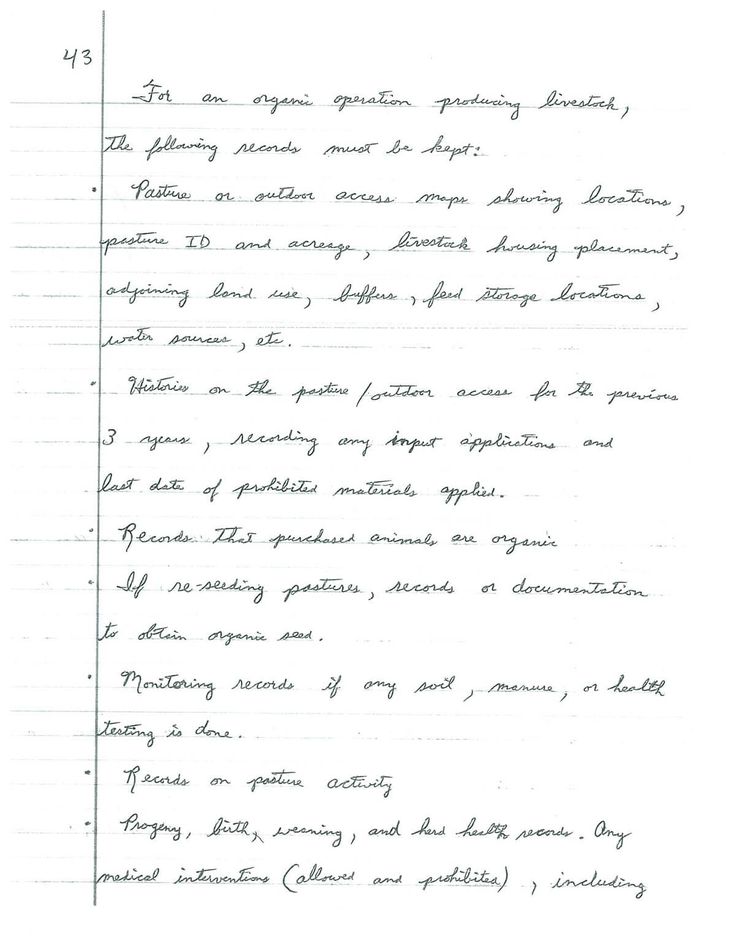 43
For an organic operation producing livestock,
the following records must be kept:
• Pasture or outdoor access maps showing locations,
pasture ID and acreage, livestock housing placement,
adjoining land use, buffers, feed storage locations,
water sources, etc.
• Histories on the pasture/outdoor access for the previous
3 years, recording any input applications and
last date of prohibited materials applied.
• Records that purchased animals are organic
• If re-seeding pastures, records or documentation
to obtain organic seed.
• Monitoring records if any soil, manure, or health
testing is done.
• Records on pasture activity
• Progeny, birth, weaning, and herd health records. Any
medical interventions (allowed and prohibited), including